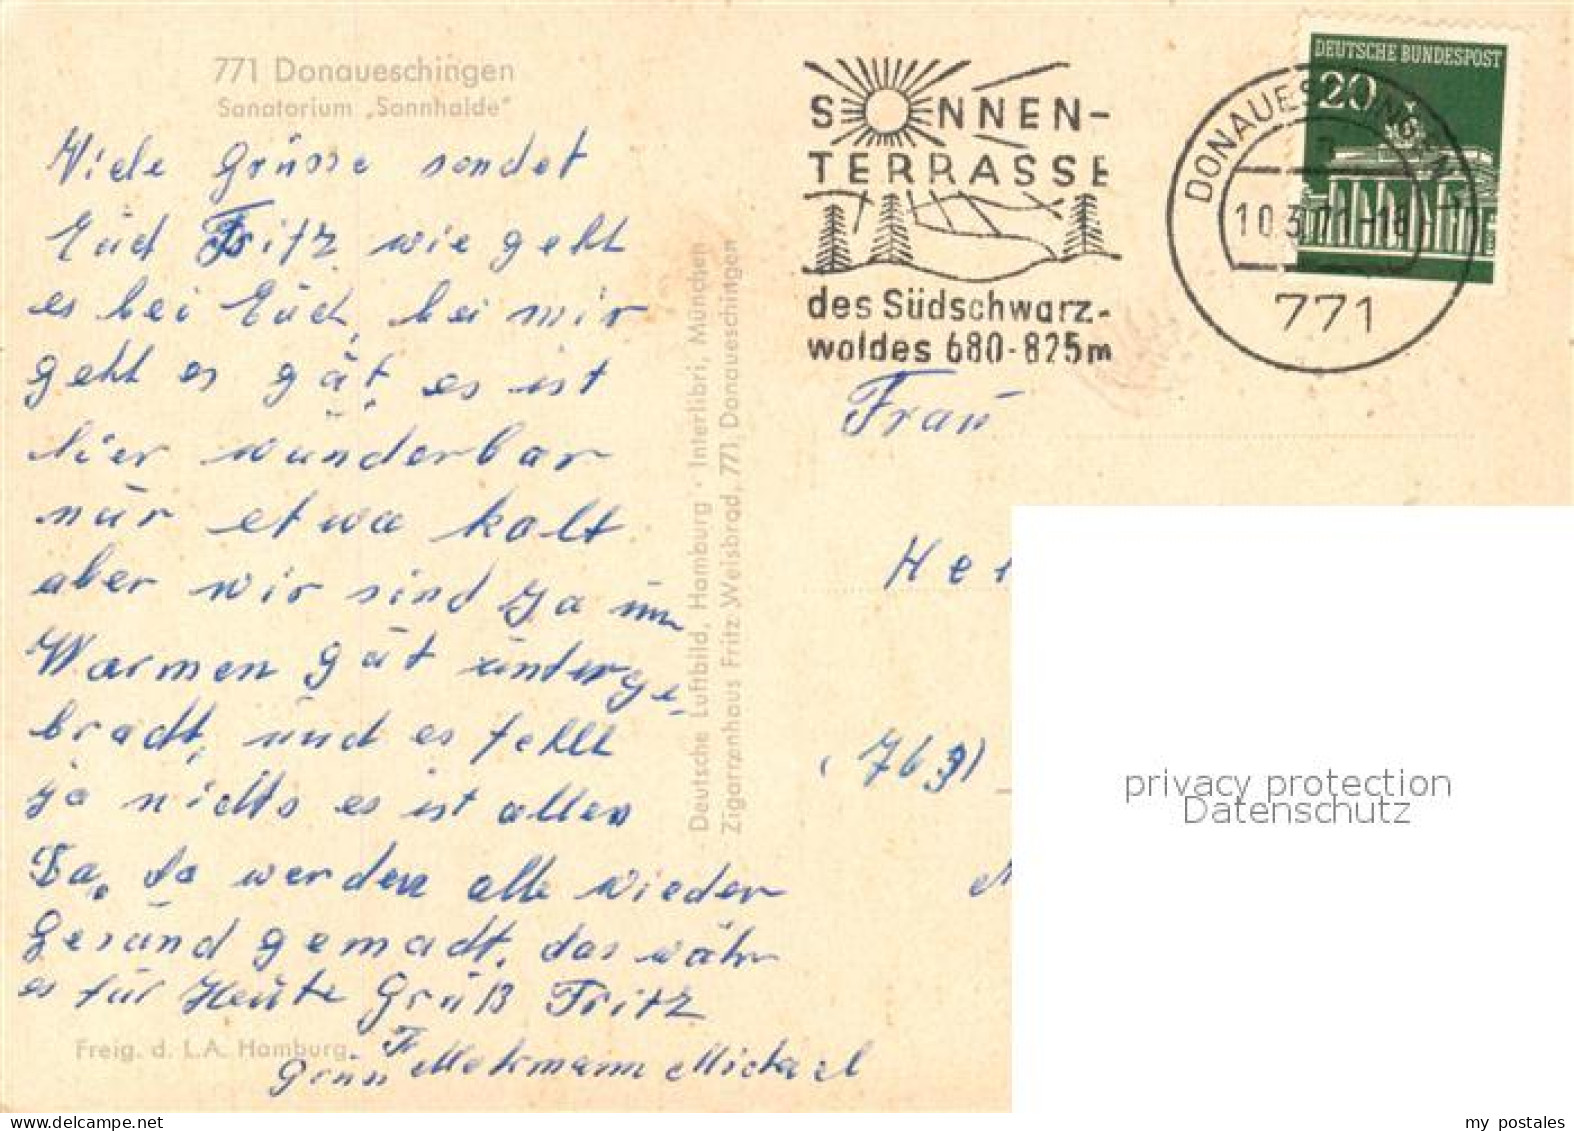 771 Donaueschingen
Sanatorium „Sonnhalde"
Viele Grüsse sendet
Euch Fritz wie geht
es bei Euch, bei mir
geht es gut es ist
hier wunderbar
nur etwa kalt
aber wir sind ja im
Warmen gut unterge-
bracht, und es fehlt
ja nichts es ist alles
Da, da werden alle wieder
Gesund gemacht, das währ
es für Heute Gruß Fritz
Freig. d. L.A. Hamburg
Michael
Deutsche Luftbild, Hamburg · Interlibri, München
Zigarrenhaus Fritz Weisbrod, 771 Donaueschingen
SONNEN-
TERRASSE
des Südschwarz-
waldes 680-825m
DEUTSCHE BUNDESPOST
20
DONAUESCHINGEN
10.3.71-18
771
Frau
(763)
privacy protection
Datenschutz
my postales